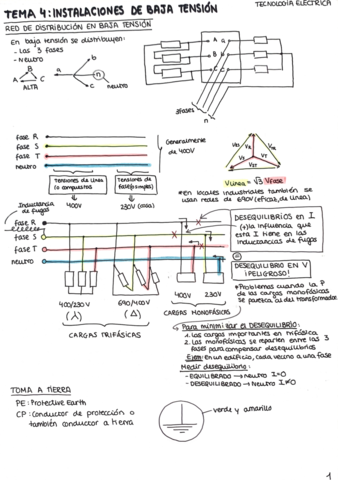 TEMA 4: INSTALACIONES DE BAJA TENSIÓN
TECNOLOGÍA ELÉCTRICA
RED DE DISTRIBUCIÓN EN BAJA TENSIÓN
En baja tensión se distribuyen:
- Las 3 fases
- Neutro
B
A
C
ALTA
a
b
n
c
neutro
A a
B b
C c
3fases
n
fase R
fase S
fase T
neutro
Generalmente
de 400V
Tensiones de línea
o compuestas
400V
Tensiones de
fase (o simples)
230V (casa)
VLínea = √3 Vfase
*En locales industriales también se
usan redes de 690V (eficaz, de línea)
Inductancia
de fugas
fase R
fase S
fase T
neutro
400/230V
(⅄)
690/400V
(Δ)
400V
230V
CARGAS TRIFÁSICAS
CARGAS MONOFÁSICAS
DESEQUILIBRIOS en I
(+) la influencia que
esta I tiene en las
inductancias de fugas
DESEQUILIBRIO EN V
¡PELIGROSO!
*Problemas cuando la P
de las cargas monofásicas
se parezca a la del transformador
Para minimizar el DESEQUILIBRIO:
1. Las cargas importantes en trifásica
2. Las monofásicas se reparten entre las 3
fases para compensar desequilibrios
Ejem: En un edificio, cada vecino a una fase
Medir desequilibrio:
- EQUILIBRADO → Neutro I=0
- DESEQUILIBRADO → Neutro I≠0
TOMA A TIERRA
PE: Protective Earth
CP: Conductor de protección o
también conductor a tierra
verde y amarillo
1